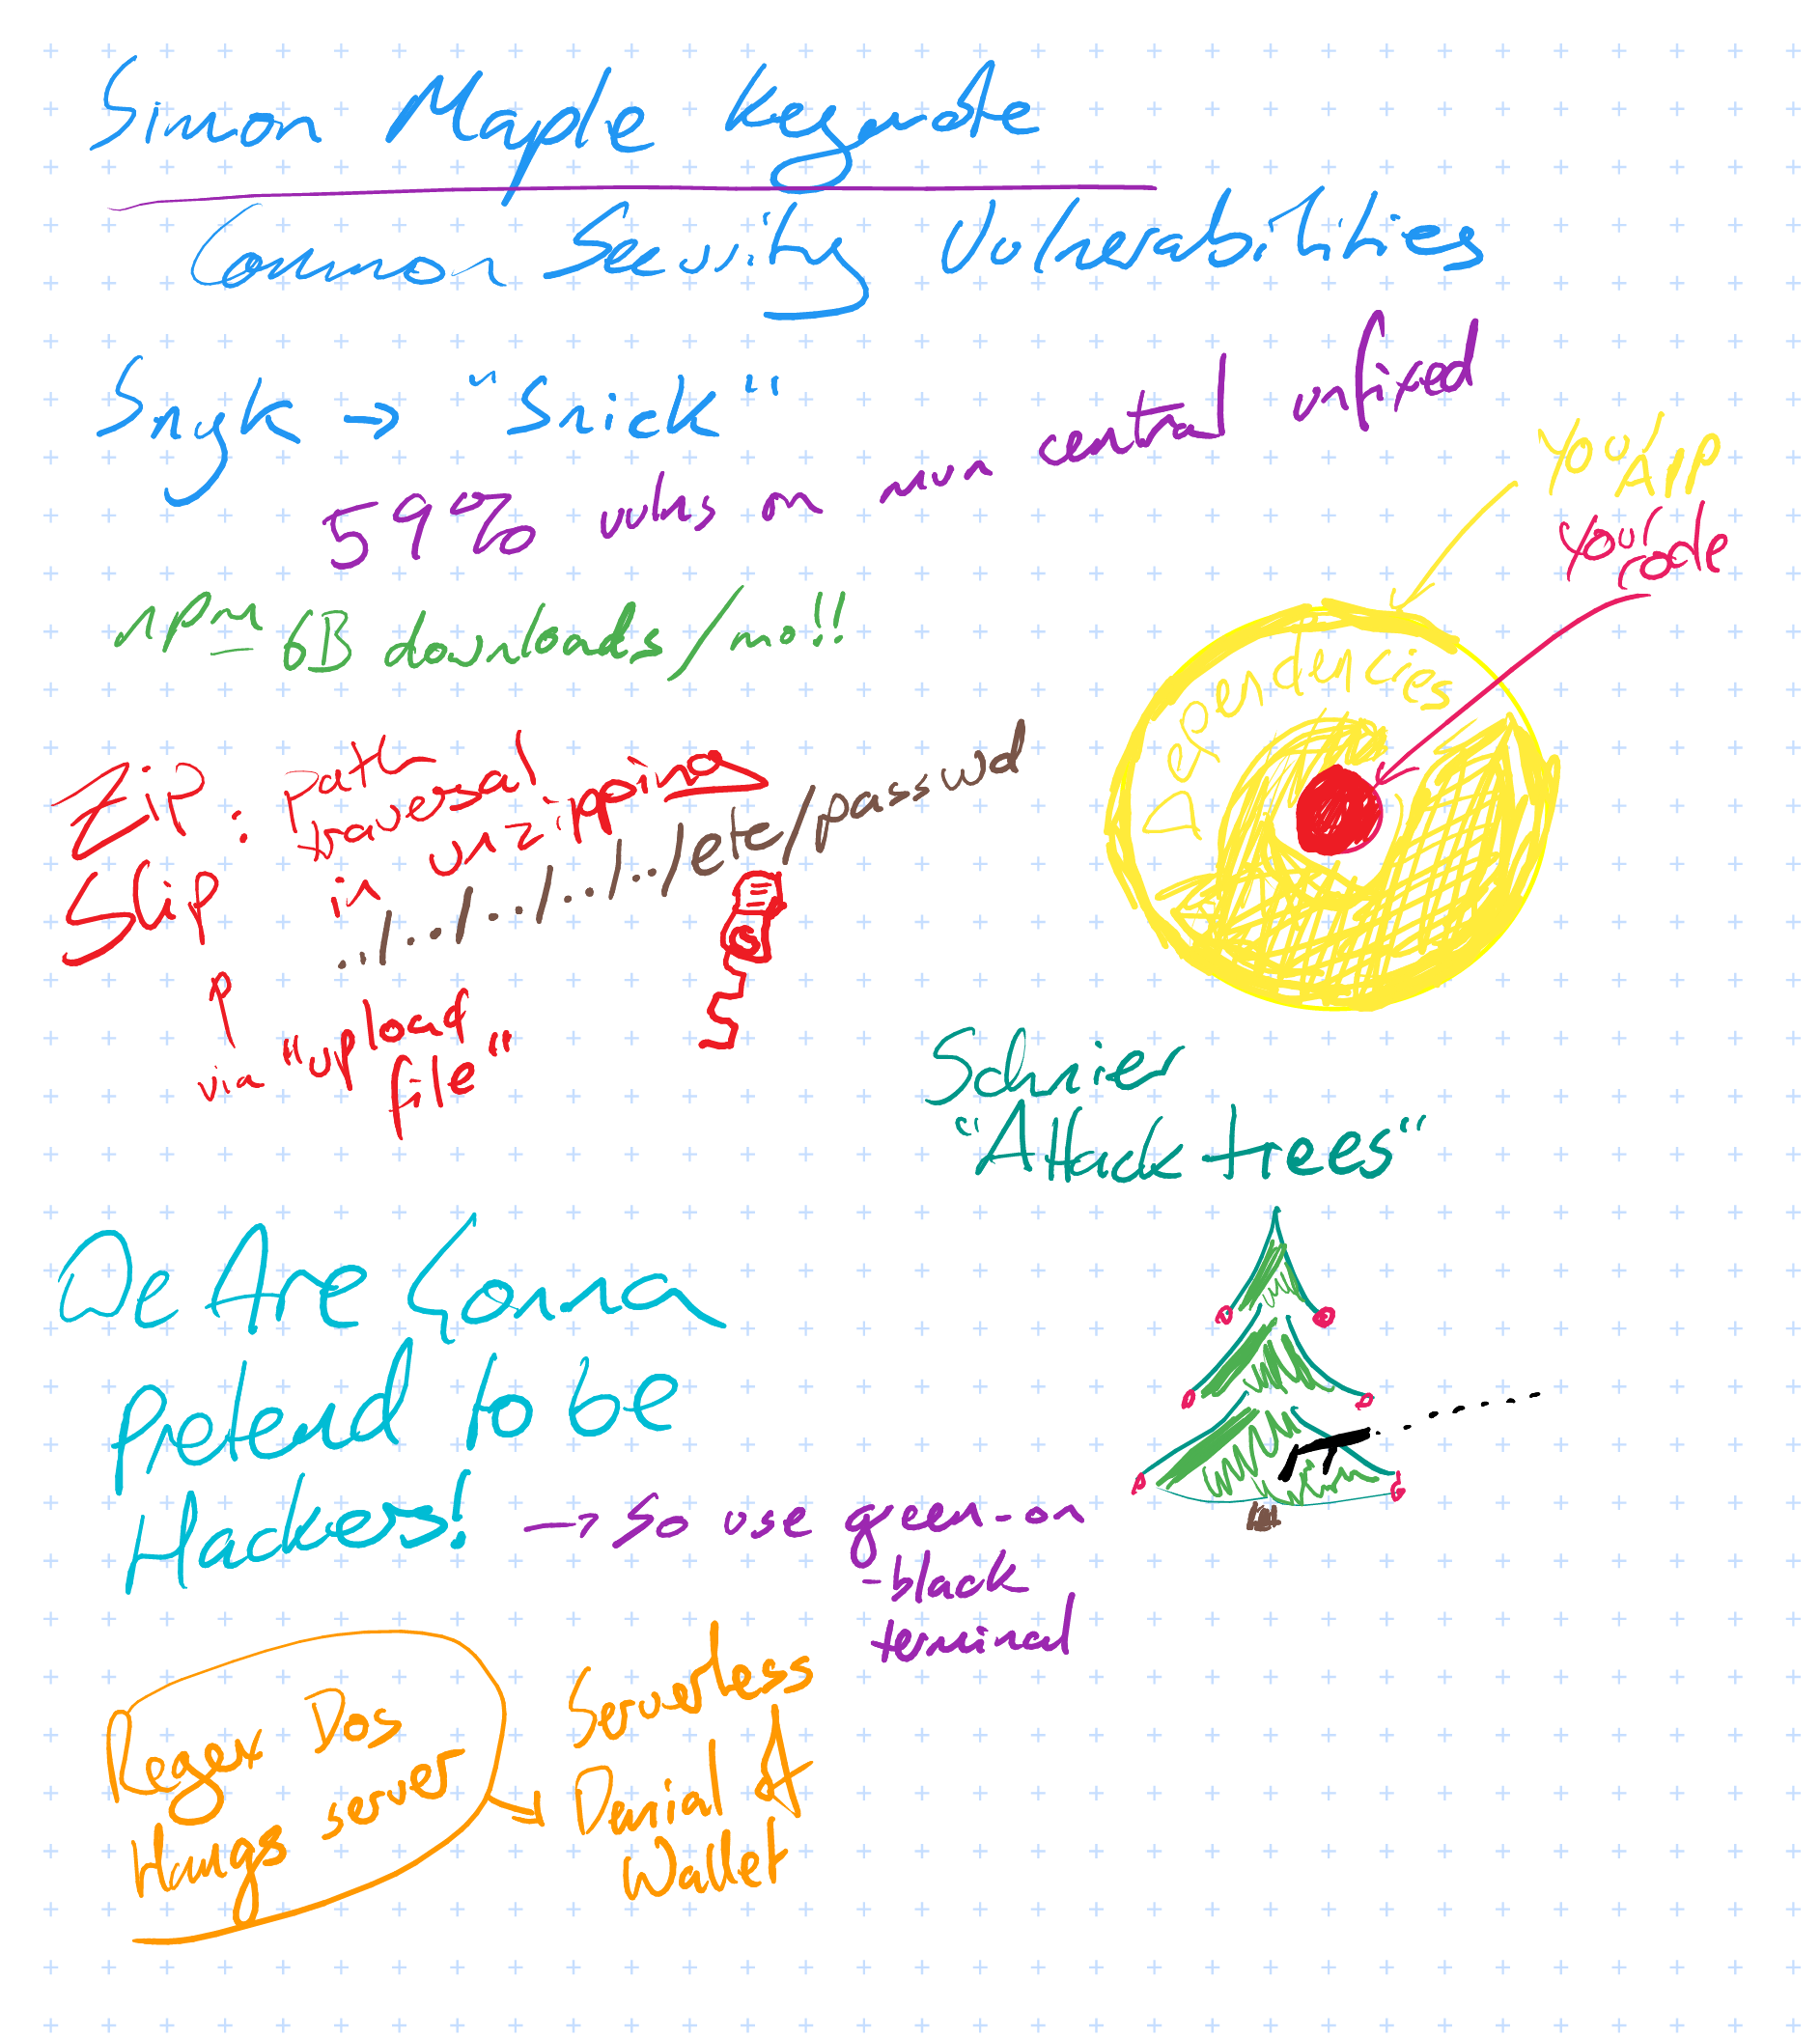 Simon Maple Keynote
Common Security Vulnerabilities
Snyk → "Snick"
59% vulns on mvn central unfixed
npm 6B downloads/mo!!
Your App
Your
code
Dependencies
Zip Slip : path
traversal
in unzipping
../../../../../etc/passwd
via "upload
file"
Schnier
"Attack trees"
We Are Gonna
Pretend to be
Hackers! → So use green-on
-black
terminal
Regex Dos
Hangs server
→ Serverless
Denial of
Wallet